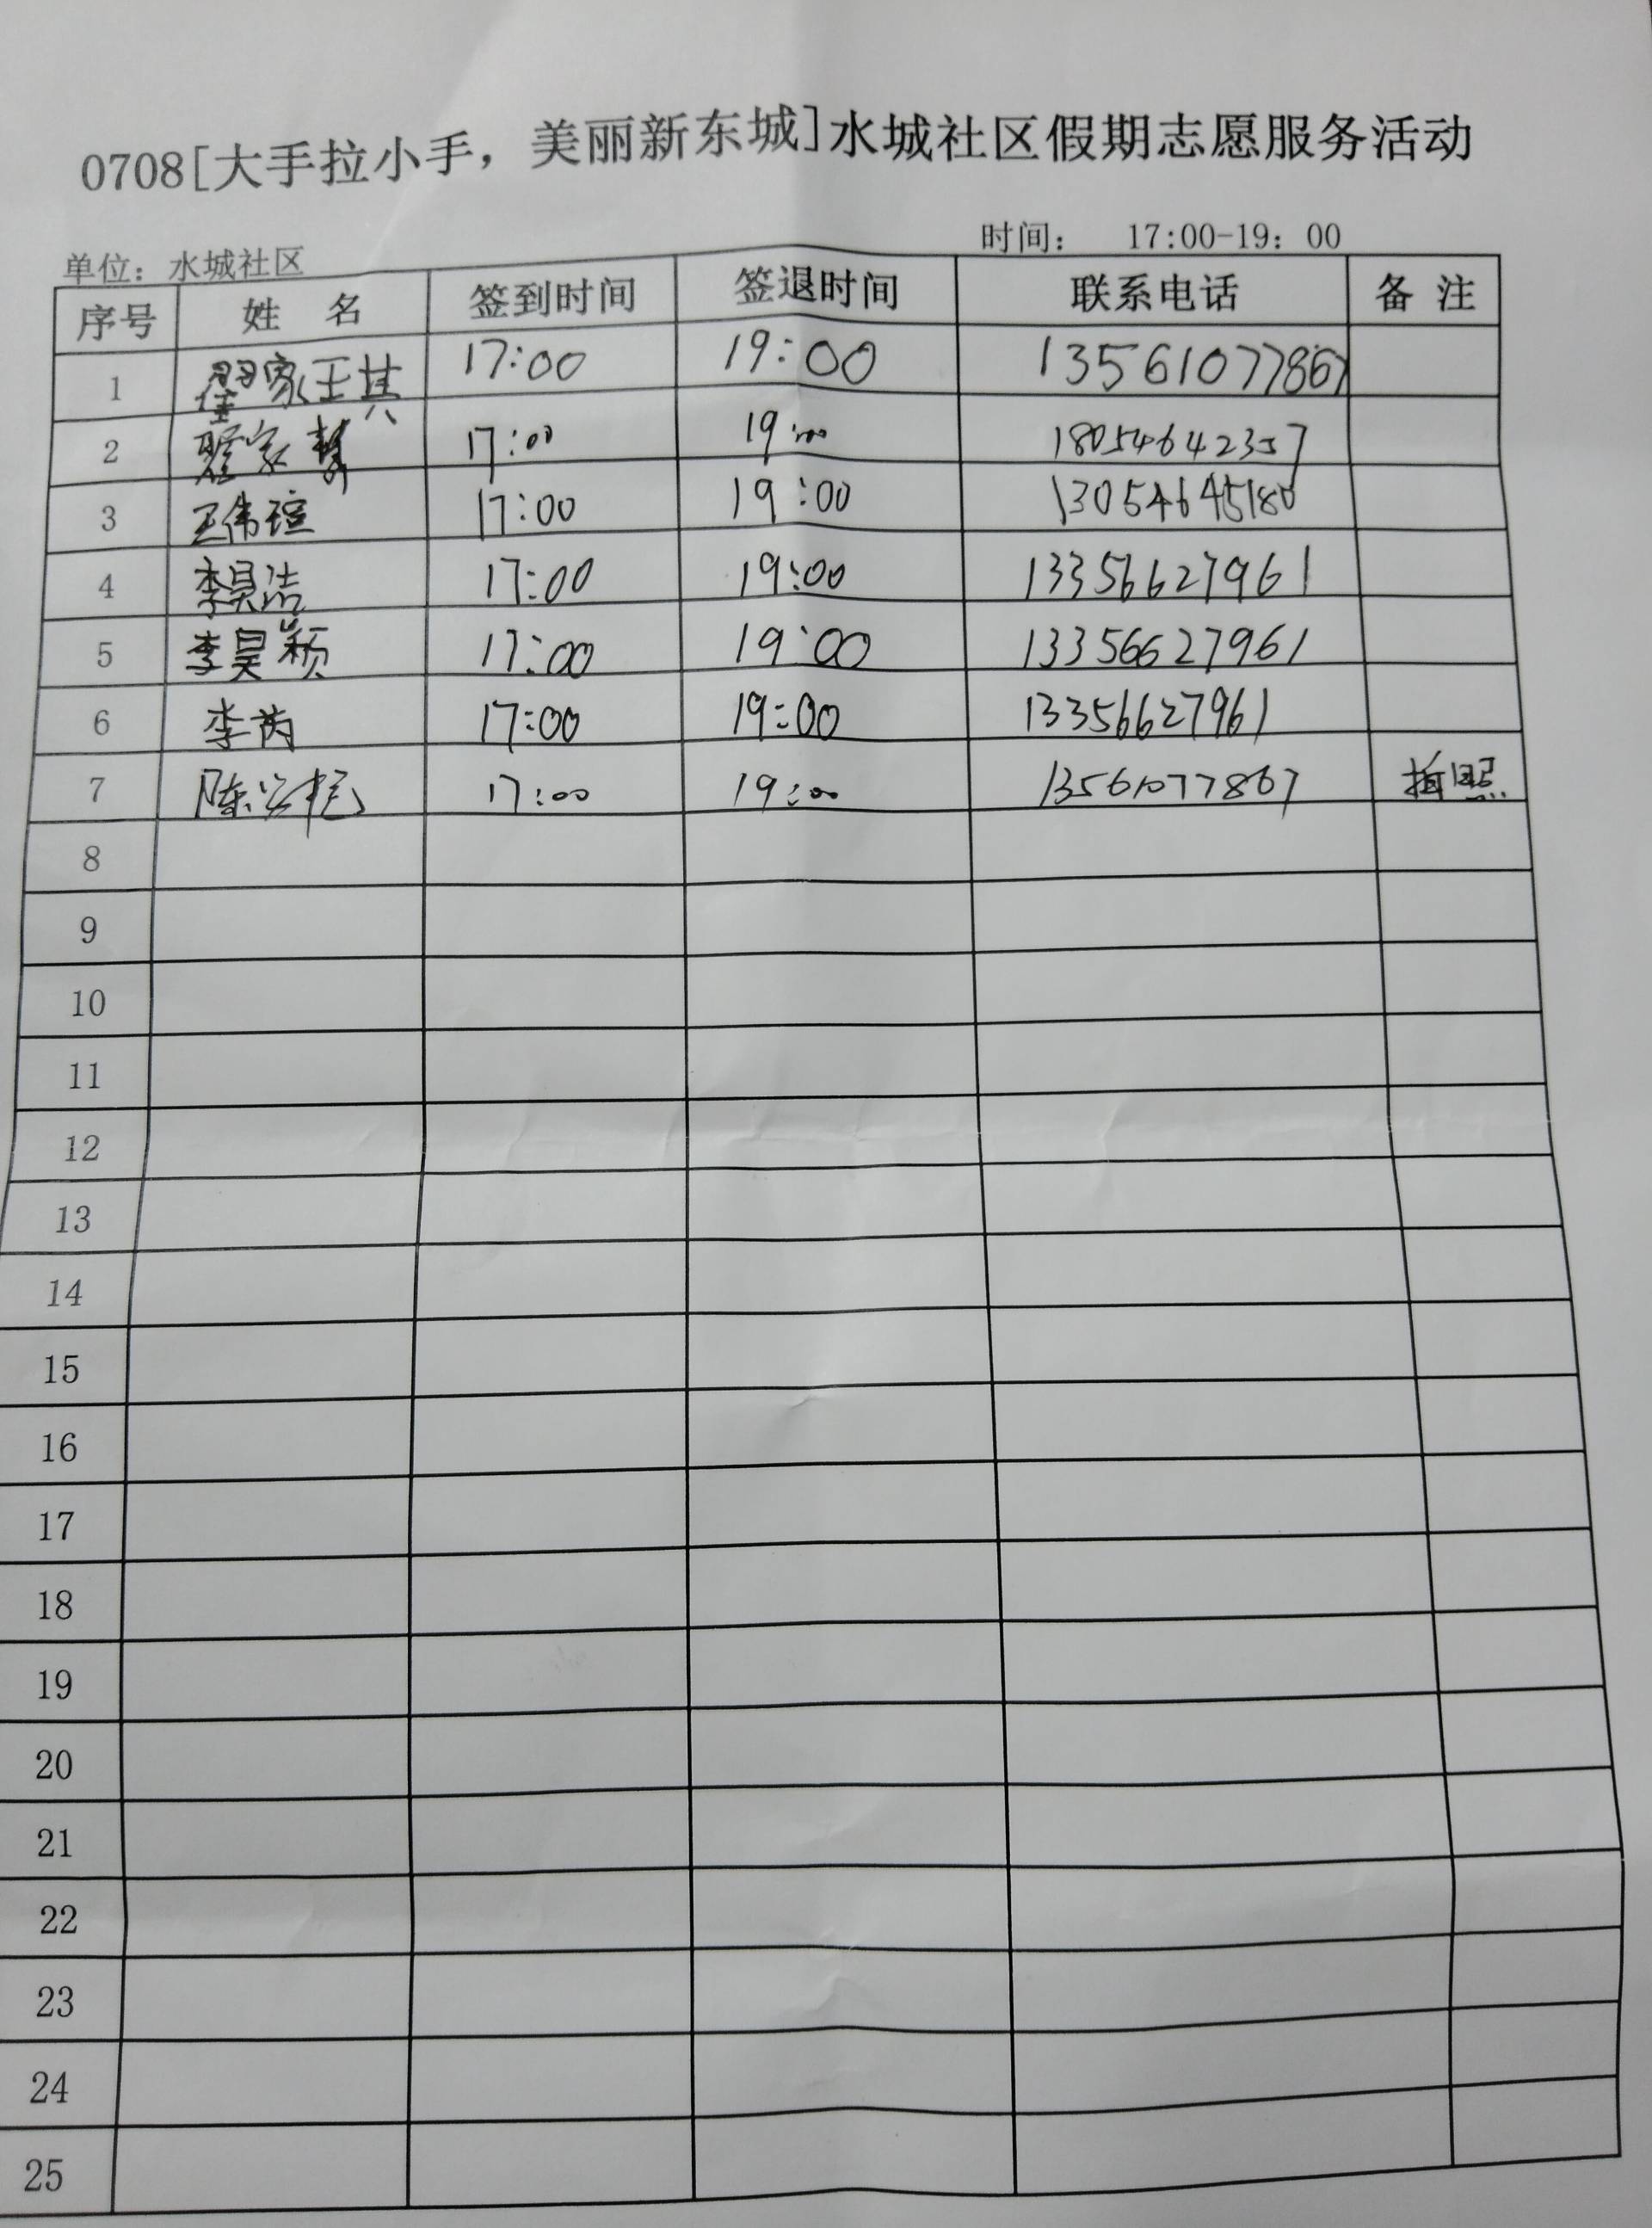 0708[大手拉小手，美丽新东城]水城社区假期志愿服务活动
单位：水城社区 时间： 17:00-19：00
序号 姓 名 签到时间 签退时间 联系电话 备 注
1 翟家琪 17:00 19:00 13561077867
2 翟家 17:00 19:00 18054642357
3 王伟瑄 17:00 19:00 13054645180
4 李昊洁 17:00 19:00 13356627961
5 李昊颖 17:00 19:00 13356627961
6 李芮 17:00 19:00 13356627961
7 陈 17:00 19:00 13561077867 拍照
8
9
10
11
12
13
14
15
16
17
18
19
20
21
22
23
24
25